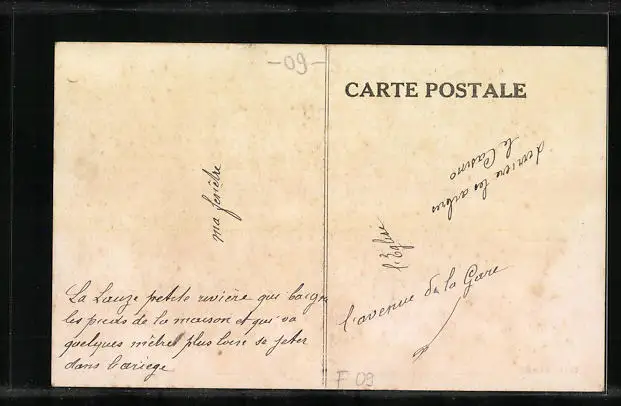 -09-
CARTE POSTALE
derriere les arbres
le Casino
ma fenêtre
l'Eglise
l'avenue de la Gare
La Lauze petite rivière qui baigne
les pieds de la maison et qui va
quelques mètres plus loin se jeter
dans l'ariege
F 09